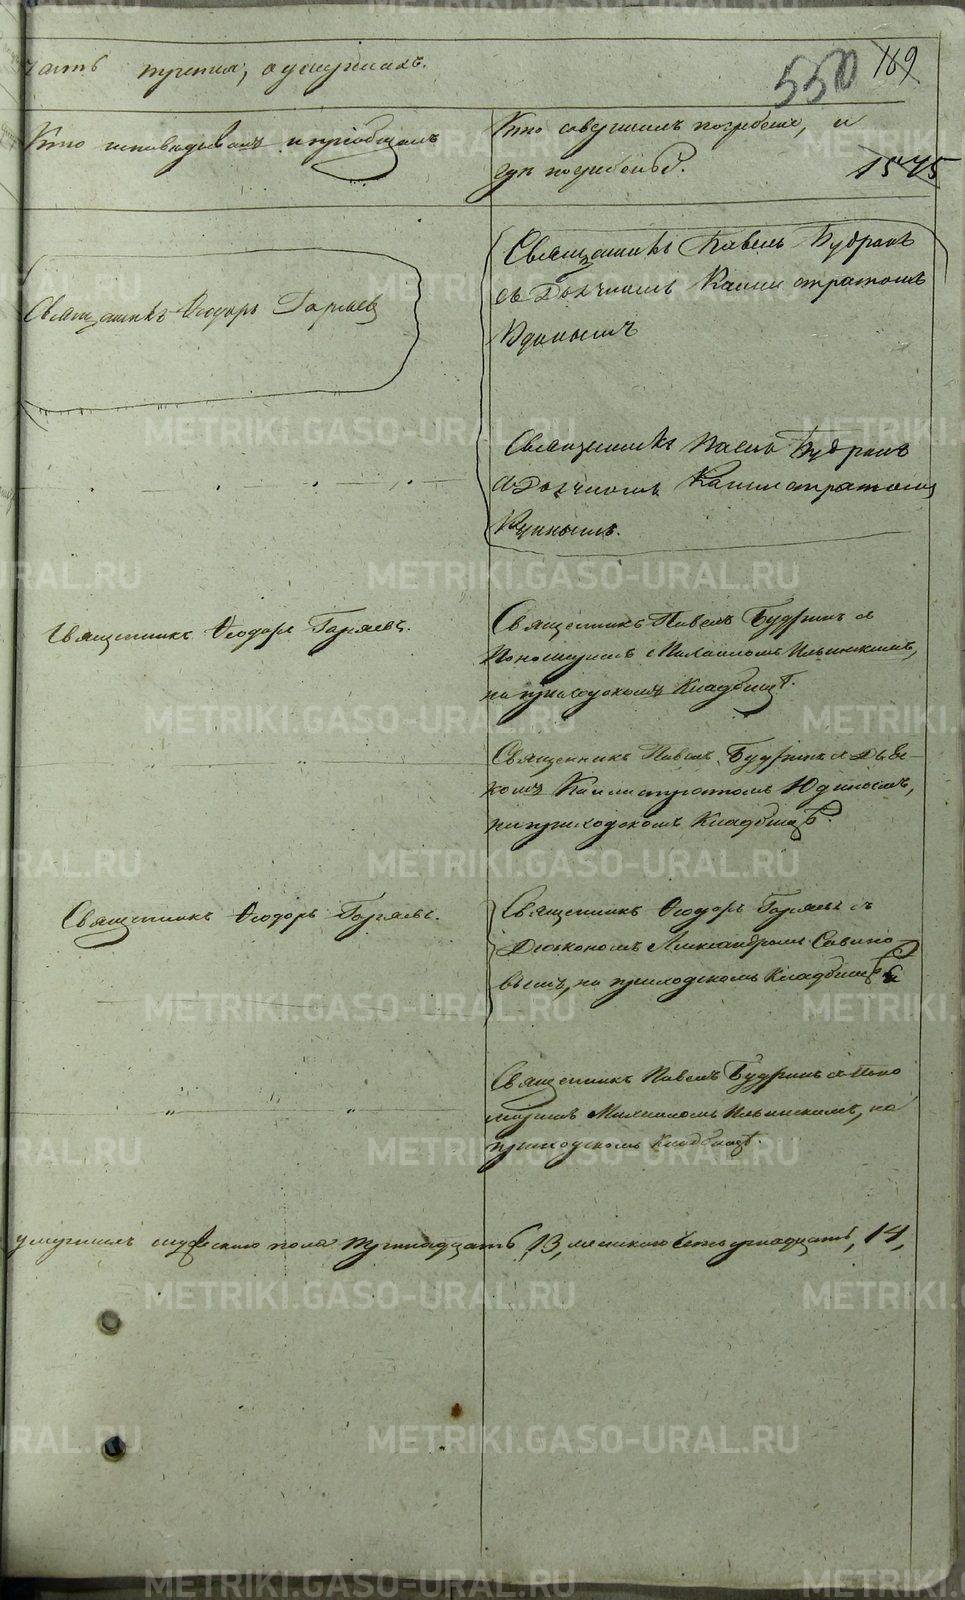 часть третия, о умершихъ.
550 169
Кто исповѣдывалъ и пріобщалъ
Кто совершилъ погребеніе, и
гдѣ погребены.
1575
Священникъ Ѳеодоръ Гаряев
Священникъ Павелъ Будринъ
съ Дьячкомъ Каллистратомъ
Юдинымъ
Священникъ Павелъ Будринъ
съ Дьячкомъ Каллистратомъ
Юдинымъ.
Священникъ Ѳеодоръ Гаряевъ.
Священникъ Павелъ Будринъ съ
Пономаремъ Михаиломъ Ильинскимъ,
на приходскомъ Кладбищѣ.
Священникъ Павелъ Будринъ съ Дьяч-
комъ Каллистратомъ Юдинымъ,
на приходскомъ Кладбищѣ.
Священникъ Ѳеодоръ Гаряевъ.
Священникъ Ѳеодоръ Гаряевъ съ
Діакономъ Александромъ Савино-
вымъ, на приходскомъ Кладбищѣ
Священникъ Павелъ Будринъ съ Поно
маремъ Михаиломъ Ильинскимъ, на
приходскомъ Кладбищѣ.
умершихъ мужескаго пола тринадцать, 13, женскаго четырнадцать, 14,
METRIKI.GASO-URAL.RU